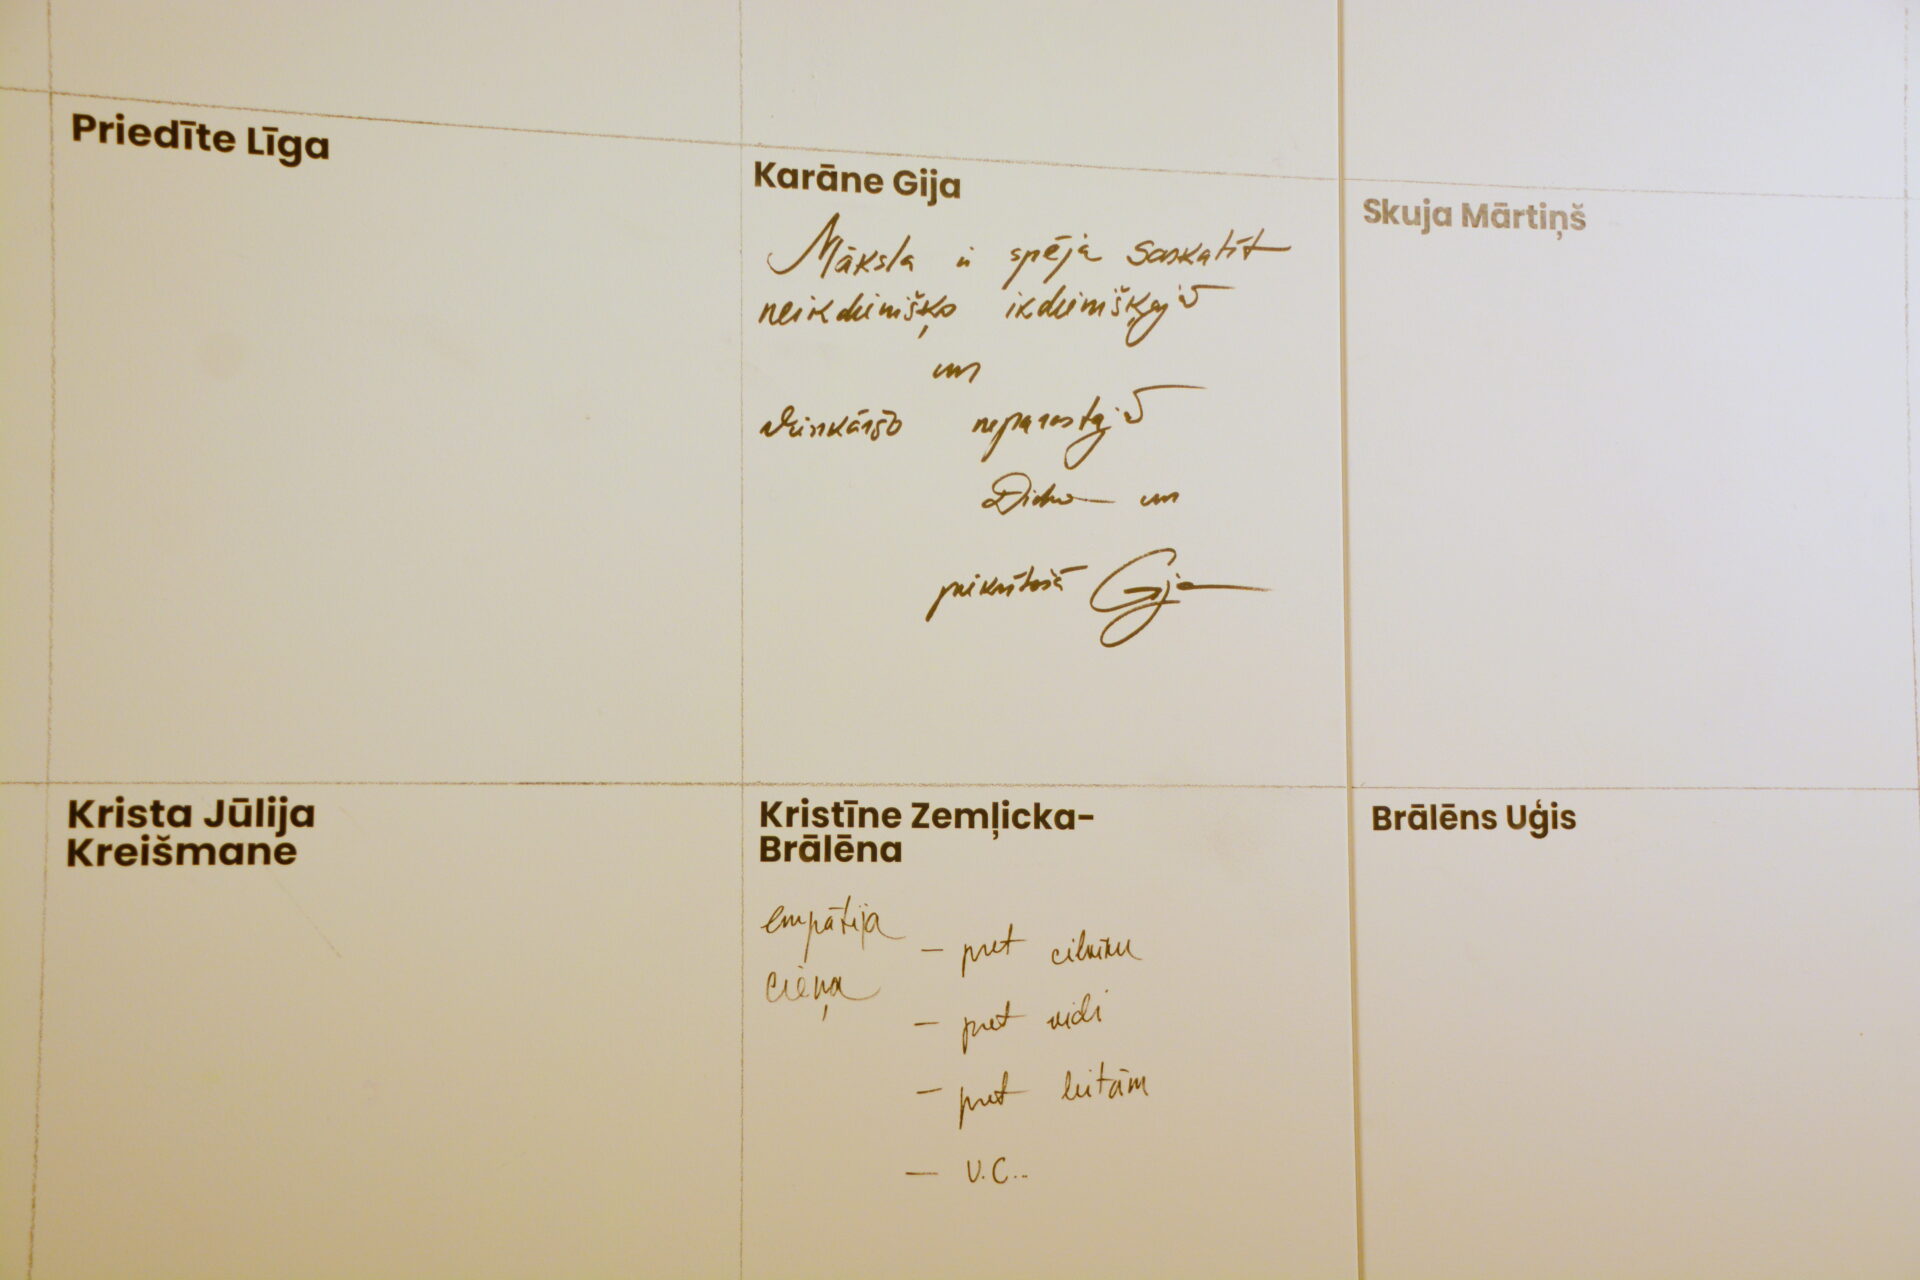 Priedīte Līga
Karāne Gija
Māksla ir spēja saskatīt
neikdienišķo ikdienišķajā
un
vienkāršo neparastajā
un
Gija
Skuja Mārtiņš
Krista Jūlija
Kreišmane
Kristīne Zemļicka-
Brālēna
empātija
cieņa
– pret cilvēku
– pret vidi
– pret lietām
– u.c..
Brālēns Uģis